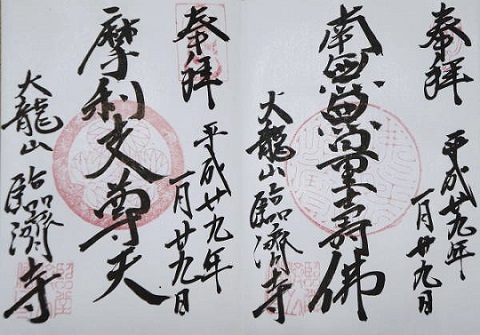 奉拝
平成廿九年
一月廿九日
南無無量壽佛
大龍山臨濟寺
奉拝
平成廿九年
一月廿九日
摩利支尊天
大龍山臨濟寺